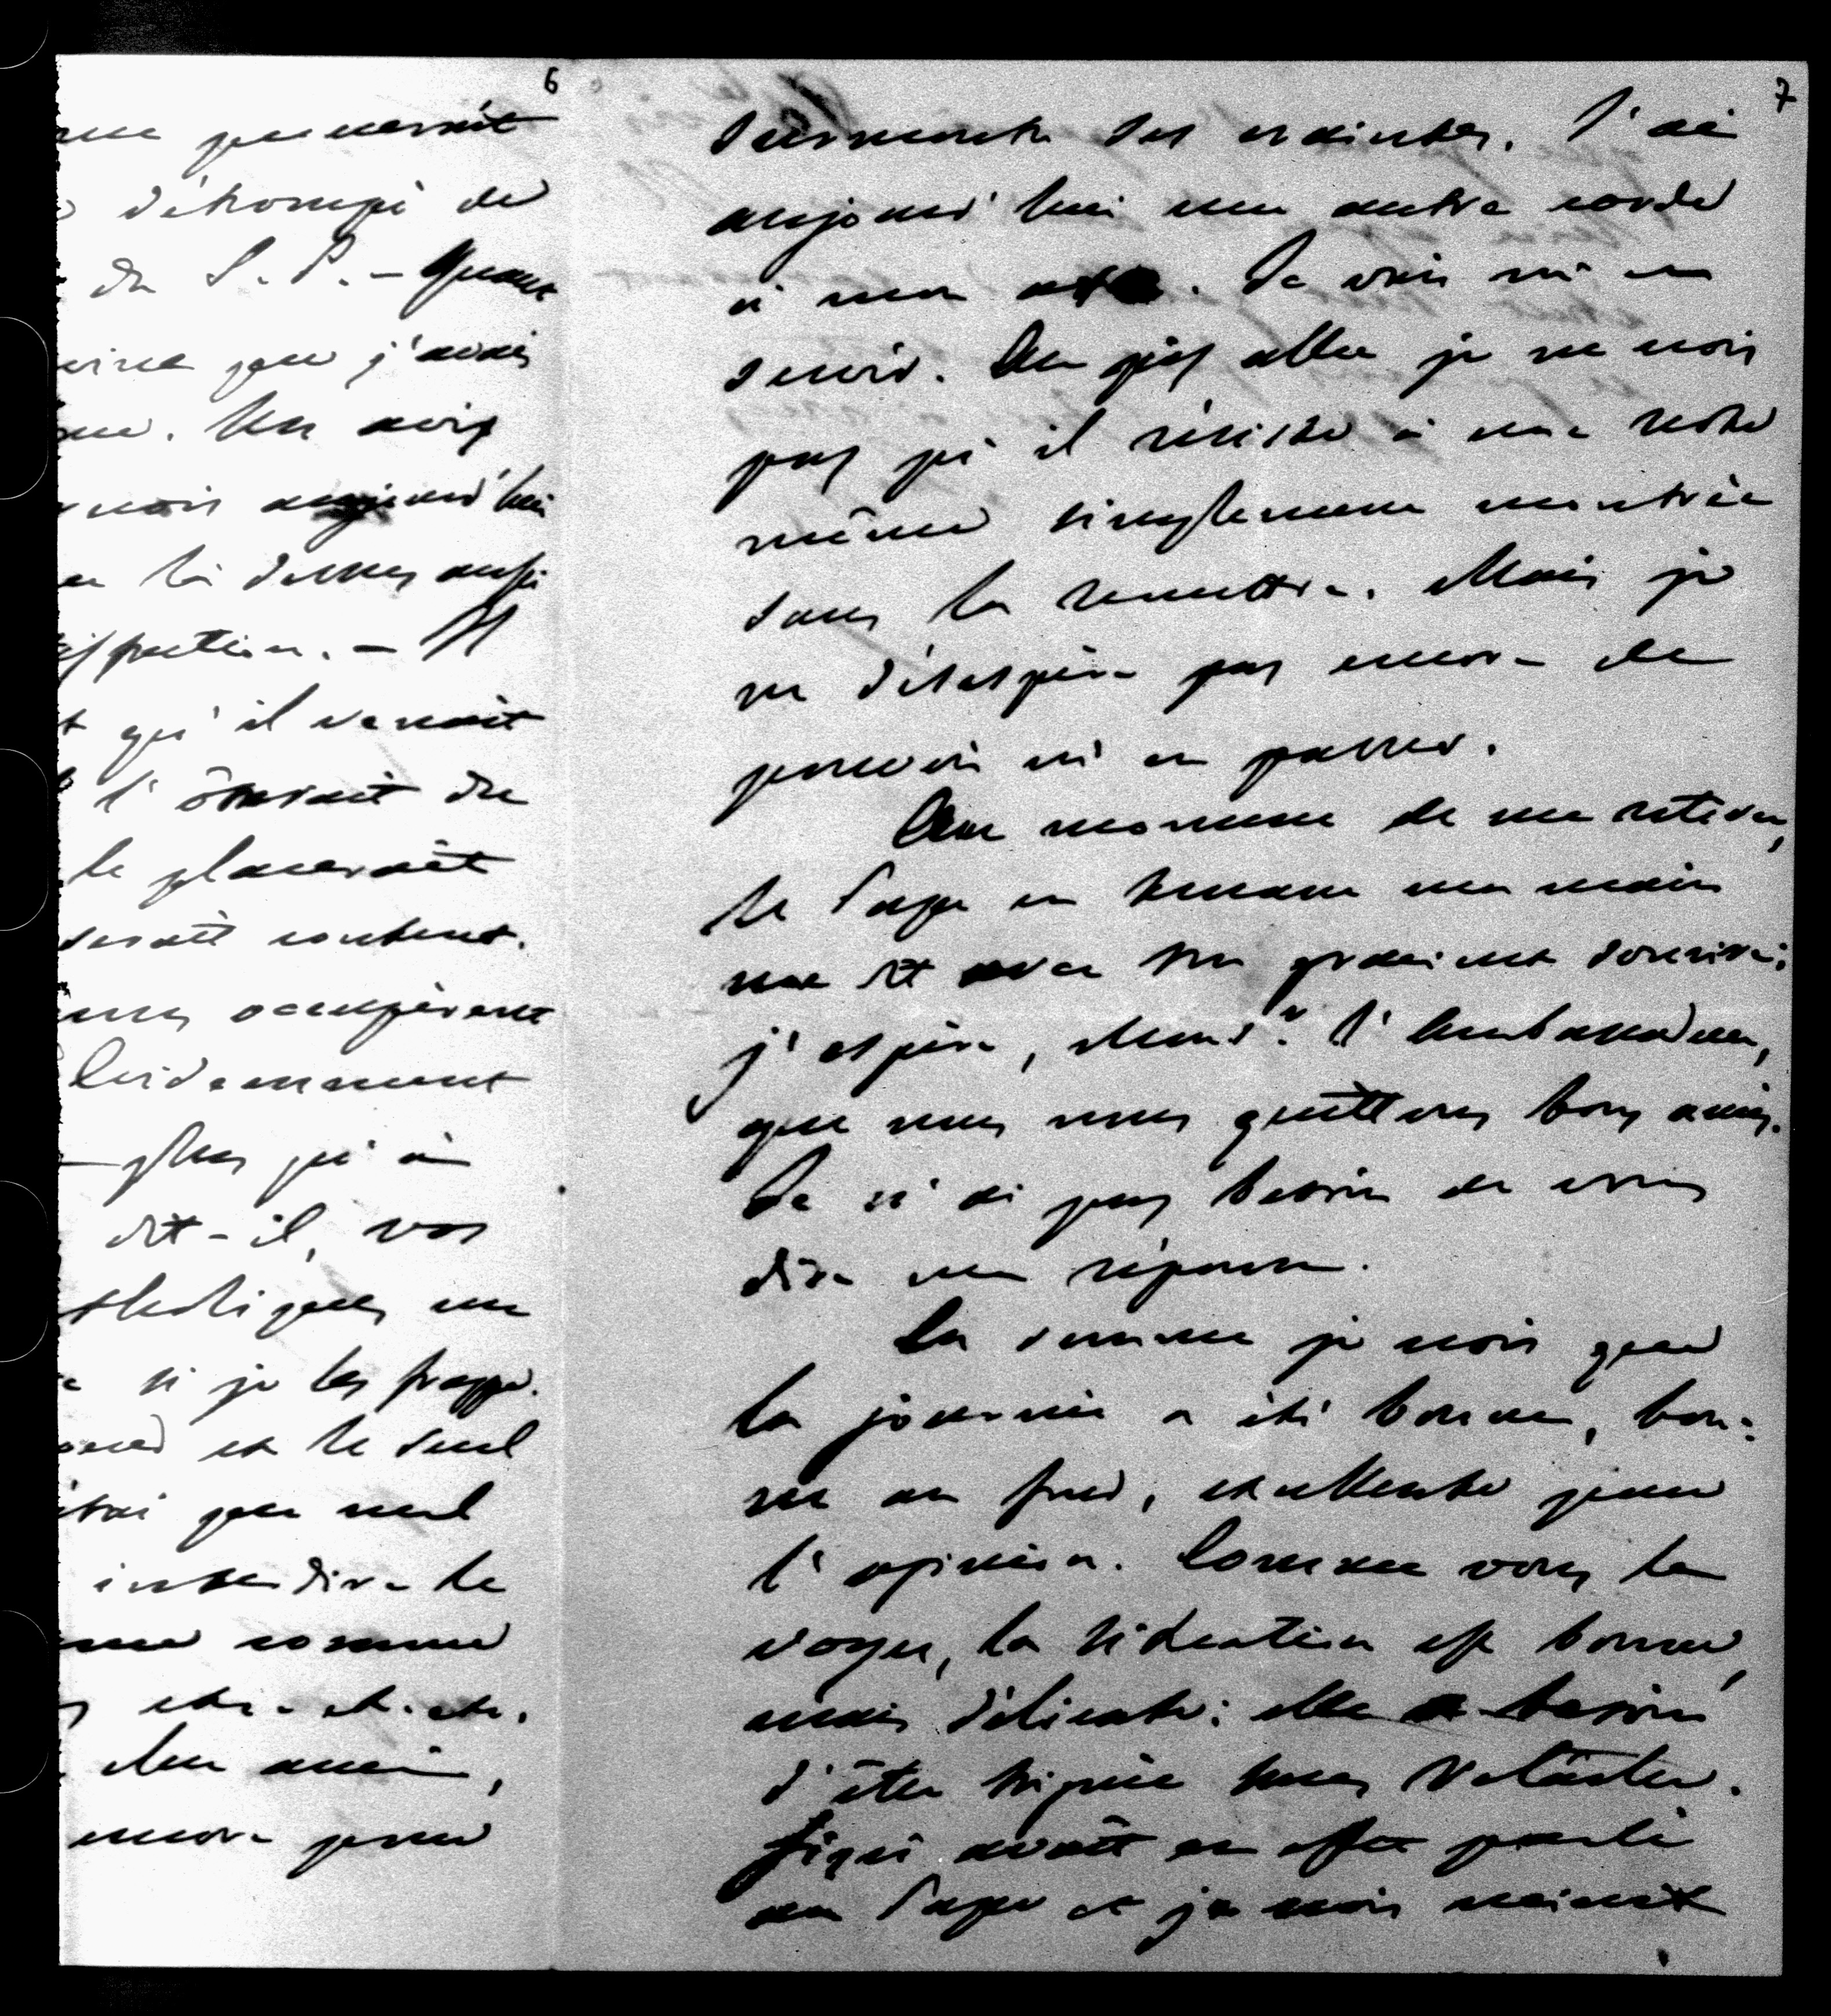 6
pencherait
détrompé de
du S. P. – Quant
que j'avais
Un avis
crois aujourd'hui
là dessus aussi
affection. – Il
qu'il venait
l'ôterait du
le placerait
serait content.
occupèrent
Evidemment
plus qu'à
dit-il, vos
catholiques me
si je les frappe.
est le seul
que seul
interdire le
comme
etc. etc. etc.
cher ami,
encore pour
7
surmonter ses craintes. J'ai
aujourd'hui une autre corde
à mon arc. Je vais m'en
servir. Au pis aller je ne crois
pas qu'il résiste à une note
même simplement montrée
sans la remettre. Mais je
ne désespère pas encore de
pouvoir m'en passer.
Au moment de me retirer,
le Pape en tenant ma main
me dit avec un gracieux sourire:
j'espère, Monsr. l'Ambassadeur,
que nous nous quittons bons amis.
Je n'ai pas besoin de vous
dire ma réponse.
En somme je crois que
la journée a été bonne, bon:
ne au fond, excellente pour
l'opinion. Comme vous le
voyez, la situation est bonne,
mais délicate: elle a besoin
d'être
avait en effet parlé
au Pape et je crois